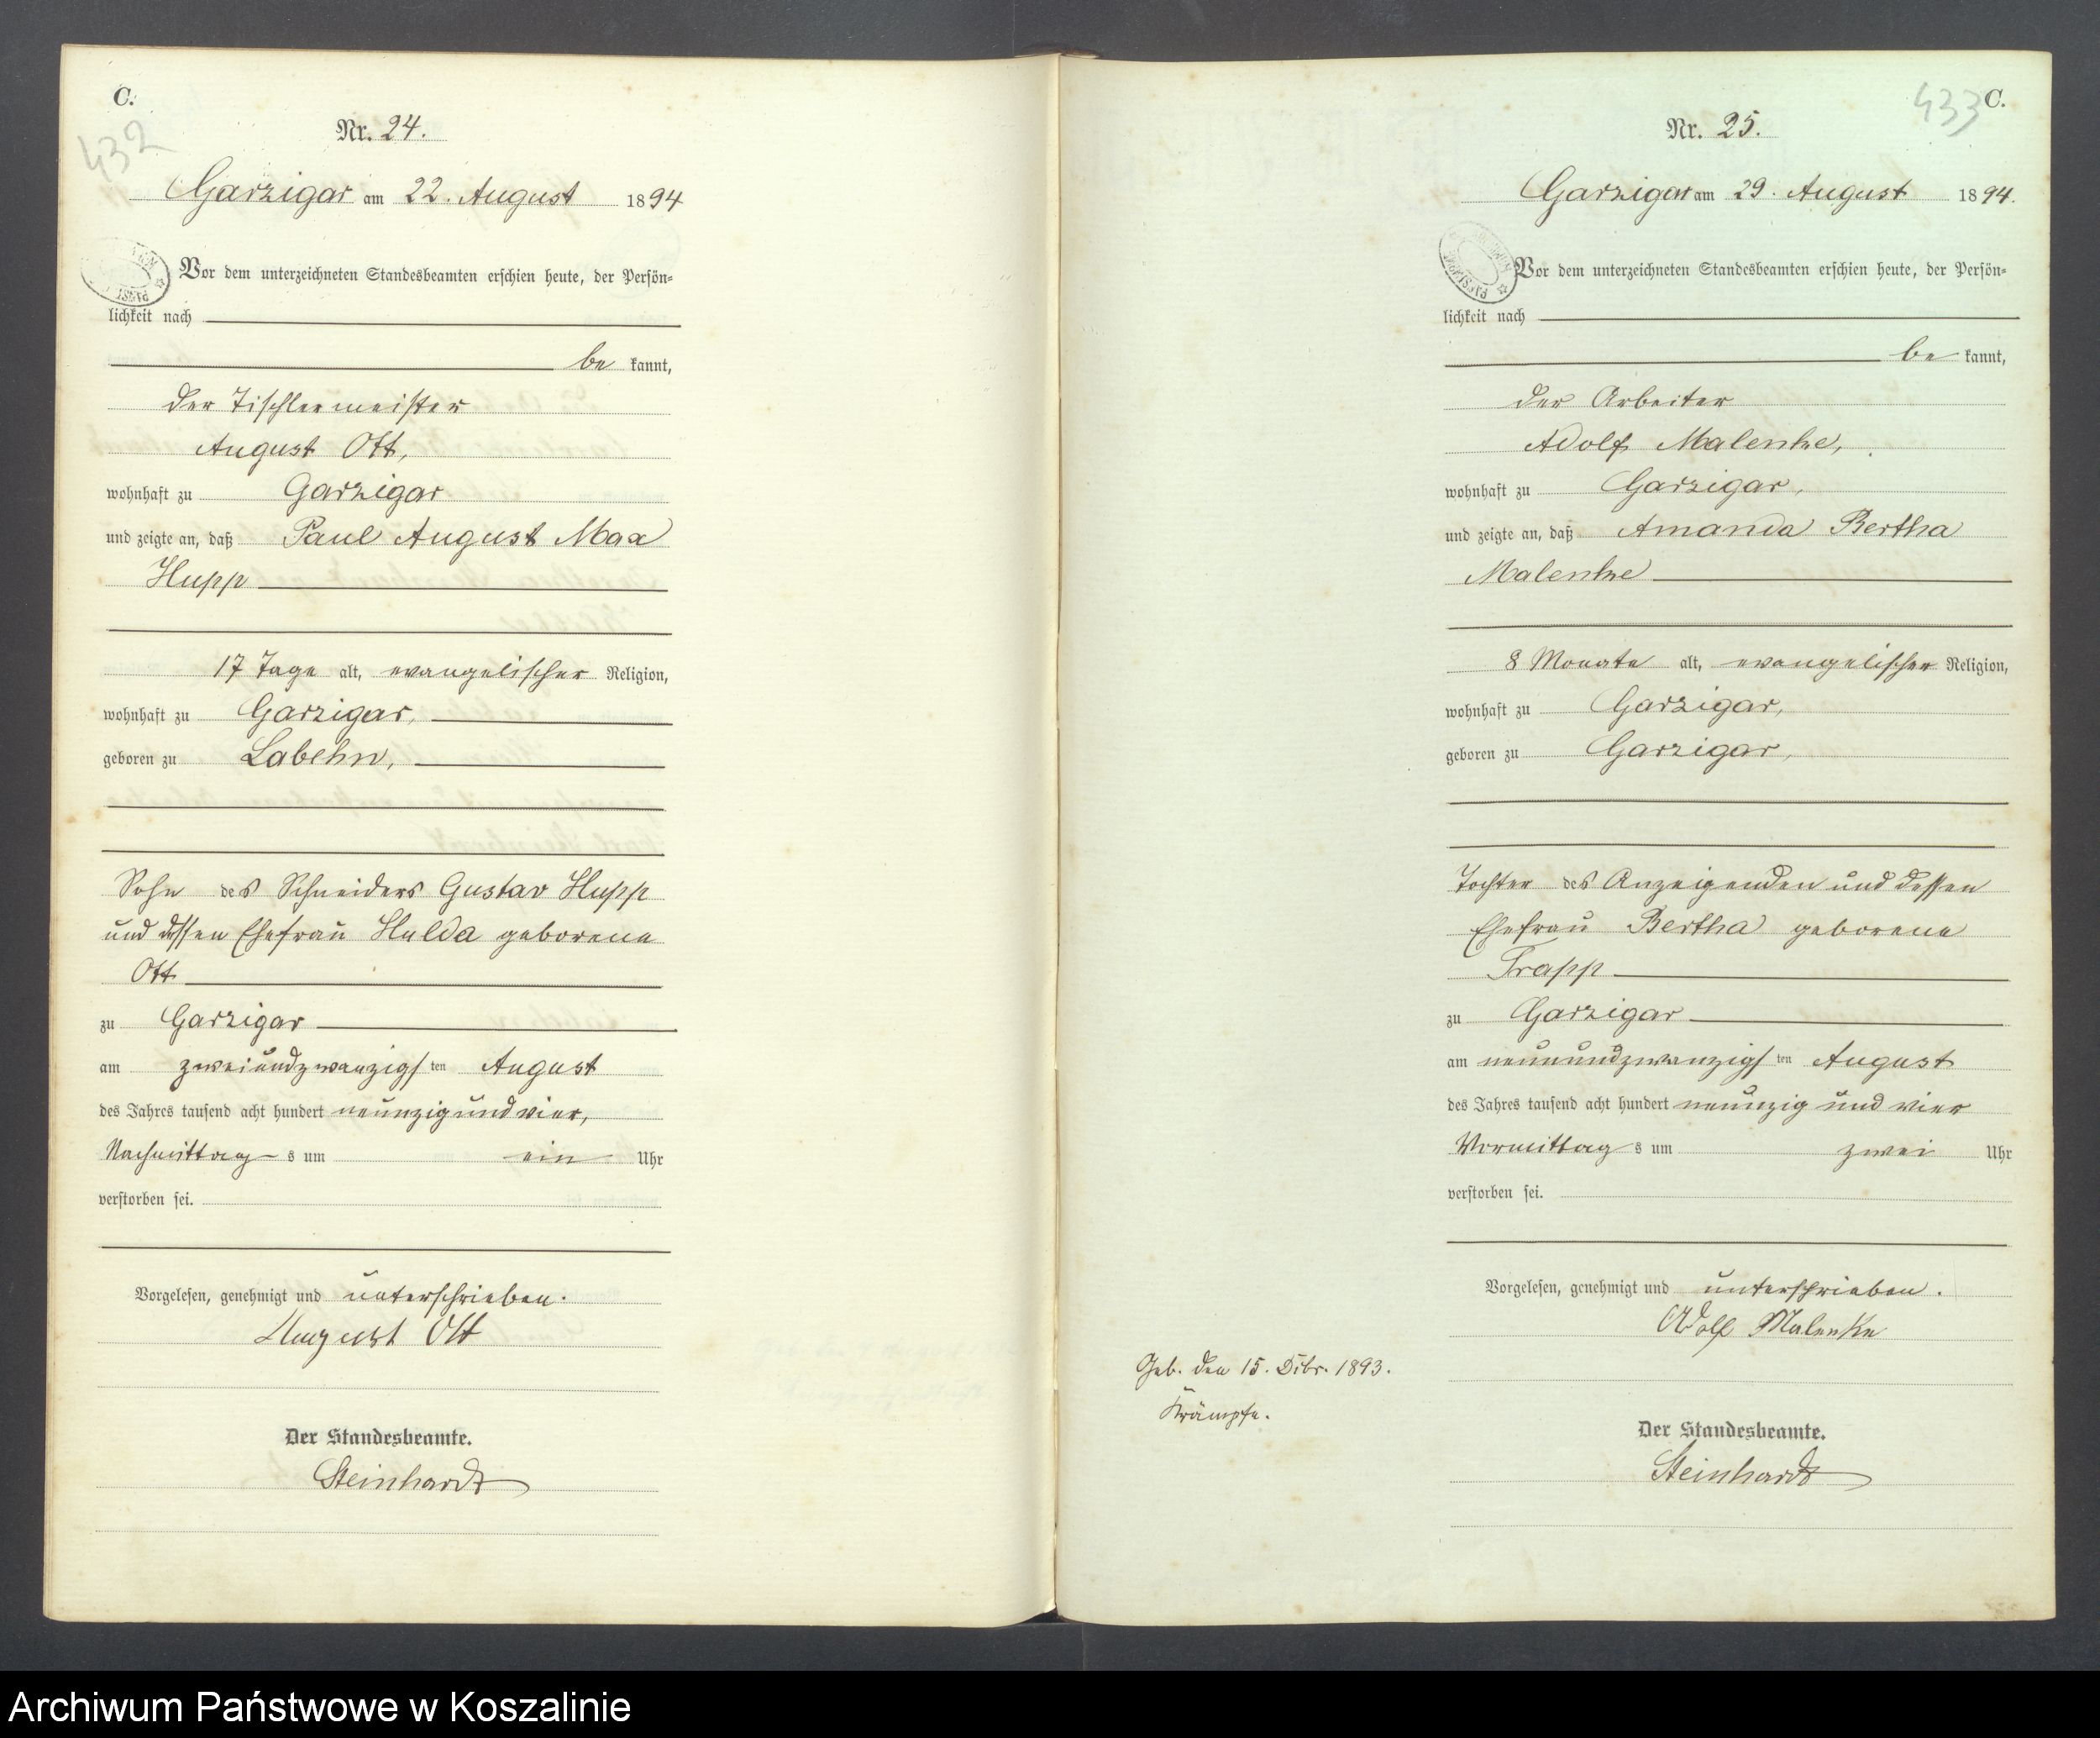 C.
432
Nr. 24.
Garzigar am 22. August 1894
Vor dem unterzeichneten Standesbeamten erschien heute, der Persön-
lichkeit nach
be kannt,
der Tischlermeister
August Ott,
wohnhaft zu Garzigar
und zeigte an, daß Paul August Max
Hupp
17 Tage alt, evangelischer Religion,
wohnhaft zu Garzigar,
geboren zu Labehn,
Sohn des Schneiders Gustav Hupp
und dessen Ehefrau Hulda geborene
Ott
zu Garzigar
am zweiundzwanzigsten August
des Jahres tausend acht hundert neunzig und vier,
Nachmittags um ein Uhr
verstorben sei.
Vorgelesen, genehmigt und unterschrieben.
August Ott
Der Standesbeamte.
Steinhardt
433
C.
Nr. 25.
Garzigar am 29. August 1894.
Vor dem unterzeichneten Standesbeamten erschien heute, der Persön-
lichkeit nach
be kannt,
der Arbeiter
Adolf Malenke,
wohnhaft zu Garzigar,
und zeigte an, daß Amanda Bertha
Malenke
8 Monate alt, evangelischer Religion,
wohnhaft zu Garzigar,
geboren zu Garzigar,
Tochter des Anzeigenden und dessen
Ehefrau Bertha geborene
Trapp
zu Garzigar
am neunundzwanzigsten August
des Jahres tausend acht hundert neunzig und vier
Vormittags um zwei Uhr
verstorben sei.
Vorgelesen, genehmigt und unterschrieben.
Adolf Malenke
Geb. den 15. Dzbr. 1893.
Krämpfe.
Der Standesbeamte.
Steinhardt
Archiwum Państwowe w Koszalinie